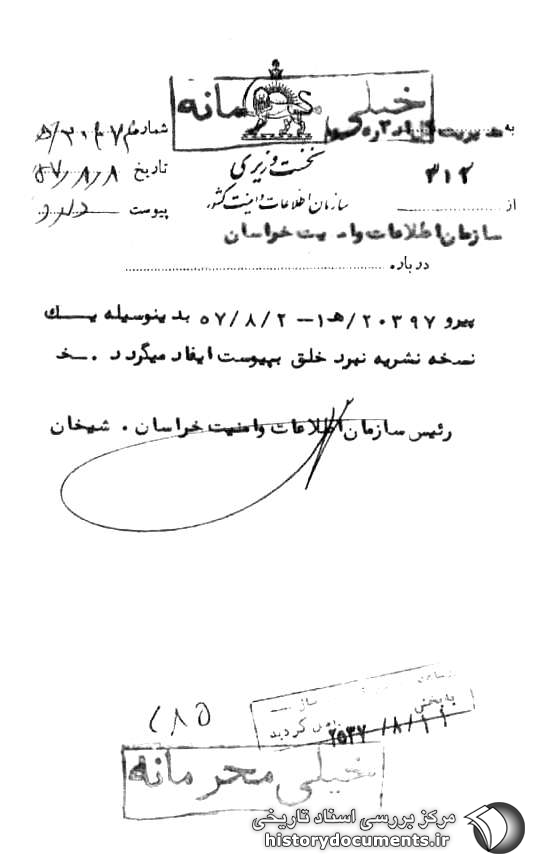 خیلی محرمانه
به مدیریت کل اداره سوم
۳۱۲
از سازمان اطلاعات وامنیت خراسان
درباره
نخست وزیری
سازمان اطلاعات و امنیت کشور
شماره
تاریخ ۵۷/۸/۸
پیوست دارد
پیرو ۲۰۳۹۷/هـ۱-۵۷/۸/۲ بدینوسیله یک
نسخه نشریه نبرد خلق بپیوست ایفاد میگردد.خ
رئیس سازمان اطلاعات وامنیت خراسان. شیخان
به بخش
گردید
۲۵۳۷/۸/۱۱
خیلی محرمانه
مرکز بررسی اسناد تاریخی
historydocuments.ir